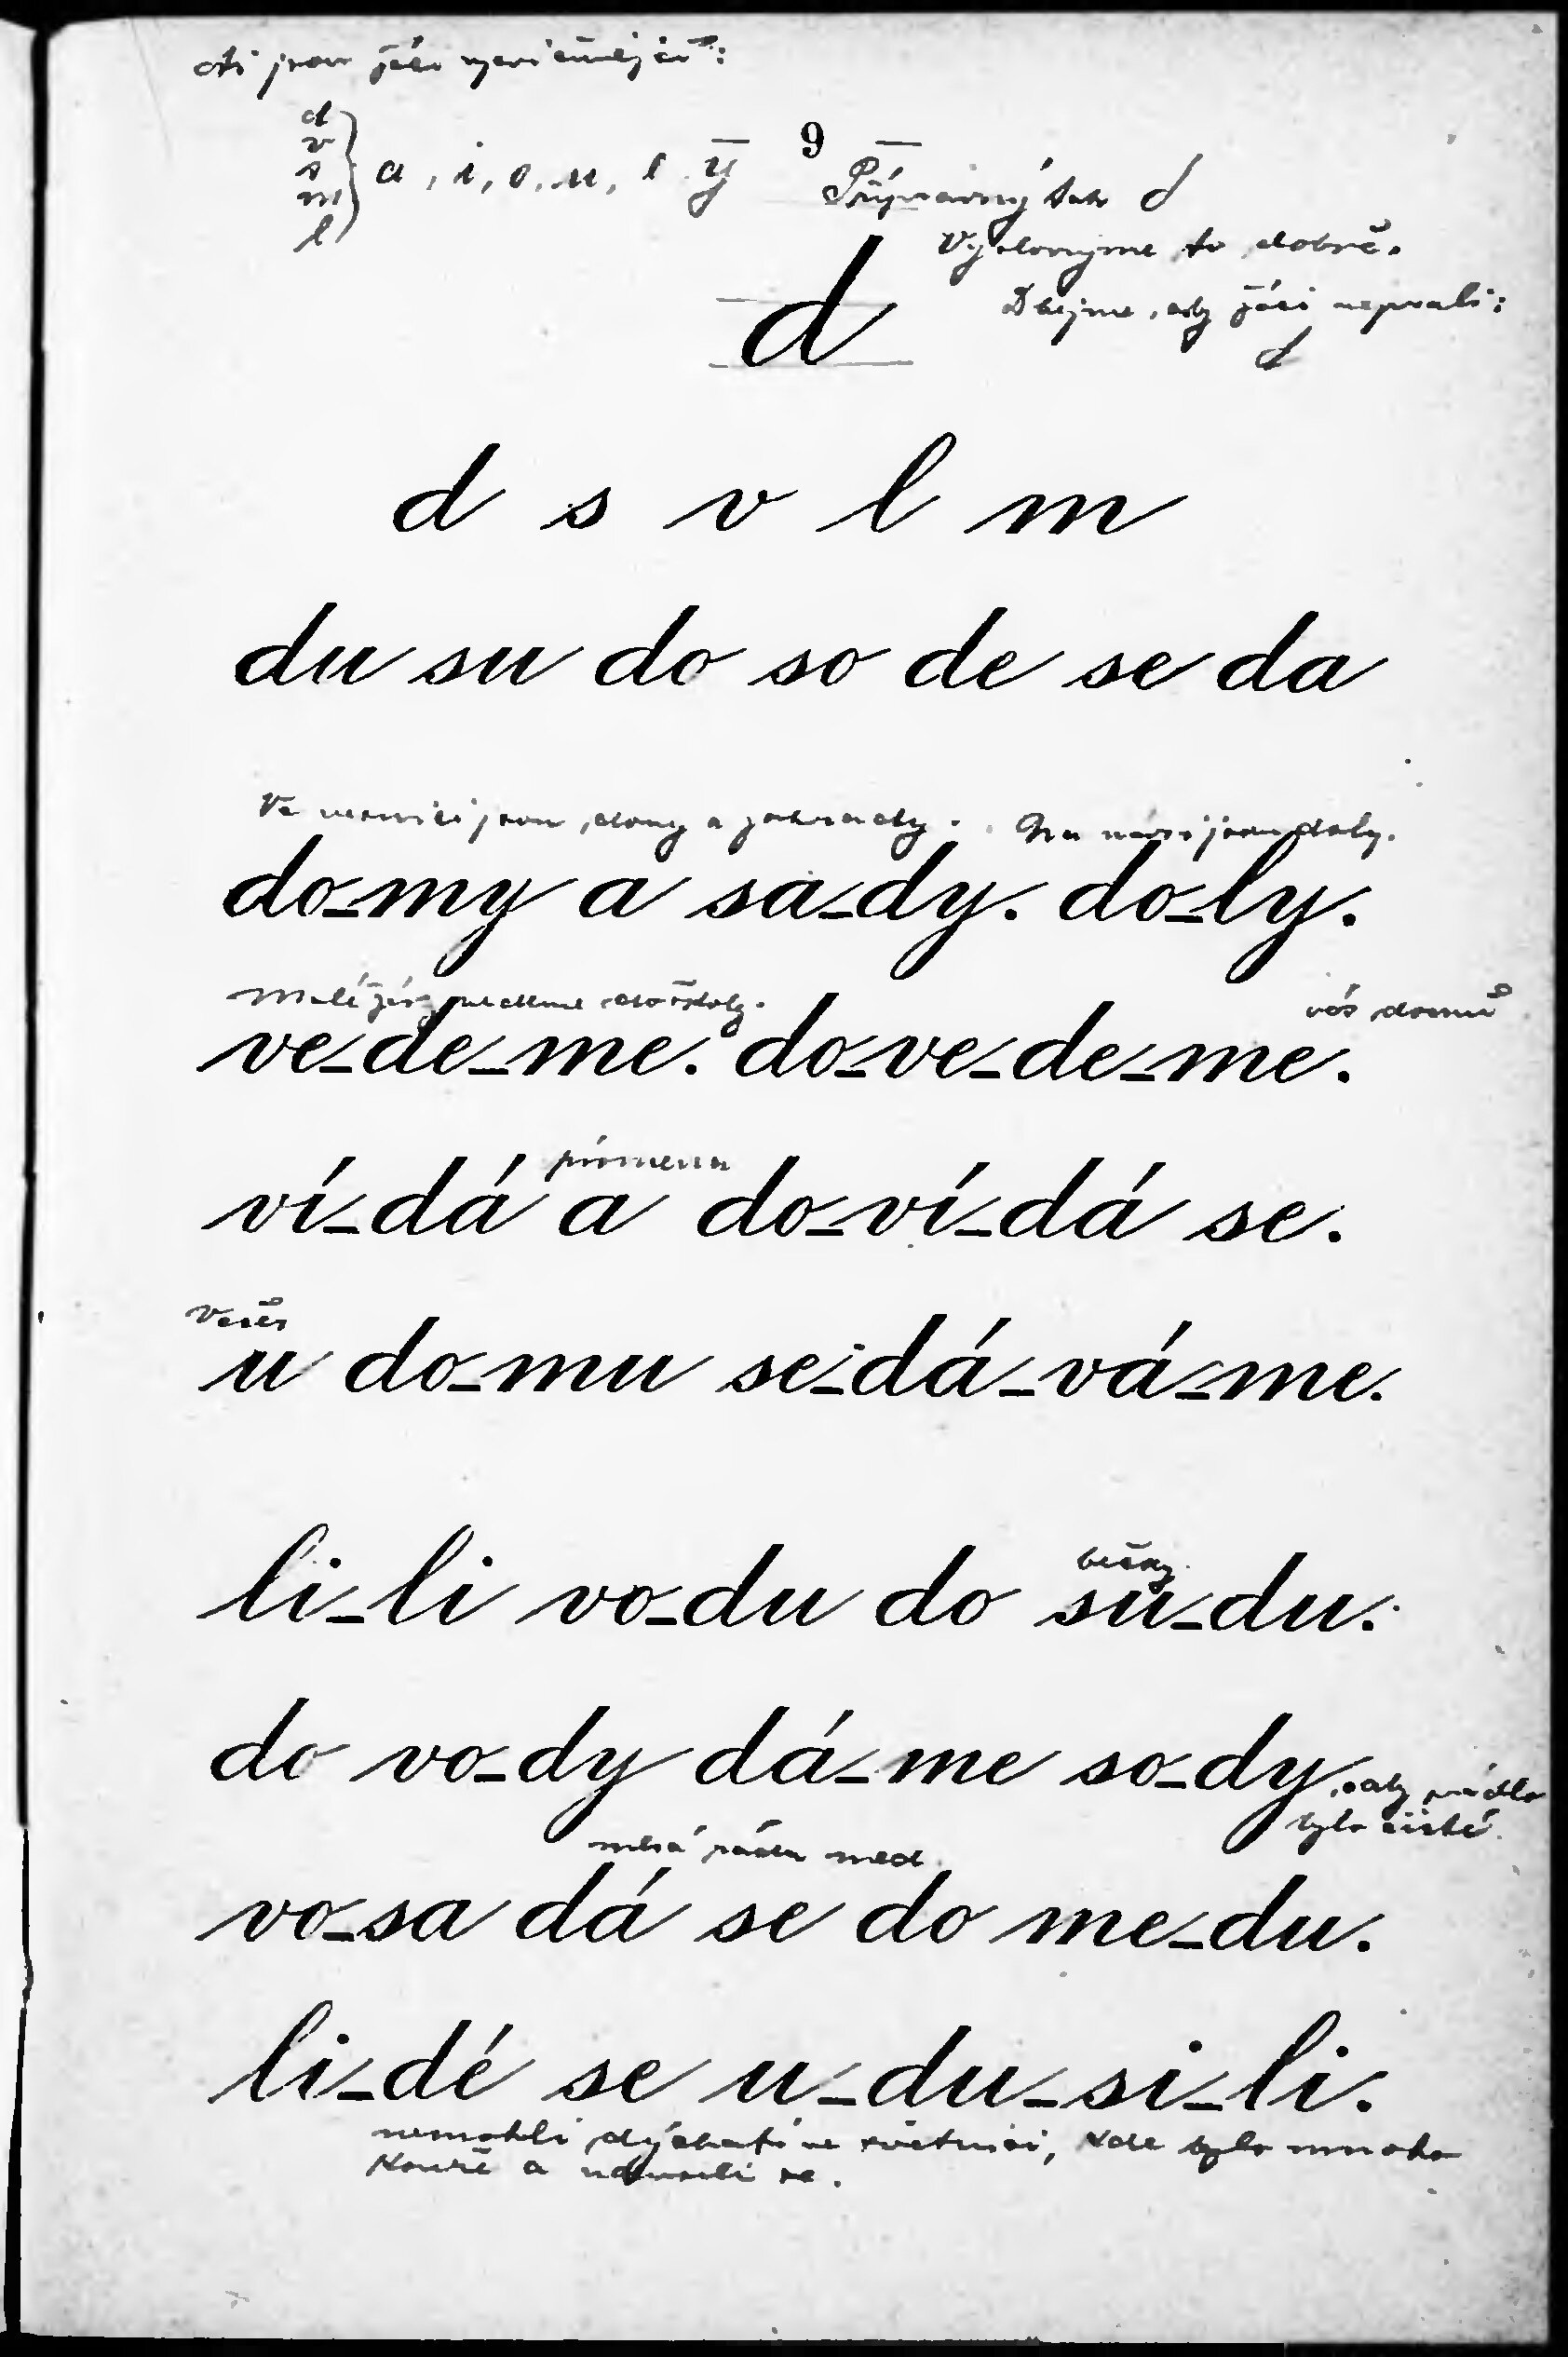 Ať jsou žáci
d
v
s
m
l
a, i, o, u, e y
9
Přípravný tah d
Vyslovujme to dobře.
Dbejme, aby žáci nepsali:
d
d
d s v l m
du su do so de se da
Ve vesnici jsou domy a zahrady. Na návsi jsou doly.
do-my a sa-dy. do-ly.
Malé žáky vedeme do školy. vás domů
ve-de-me. do-ve-de-me.
písmena
ví-dá a do-ví-dá se.
Večer
u do-mu se-dá-vá-me.
bečky
li-li vo-du do su-du.
do vo-dy dá-me so-dy, aby prádlo
bylo čisté.
med
vo-sa dá se do me-du.
li-dé se u-du-si-li.
nemohli dýchati ve světnici, kde bylo mnoho
kouře a udusili se.